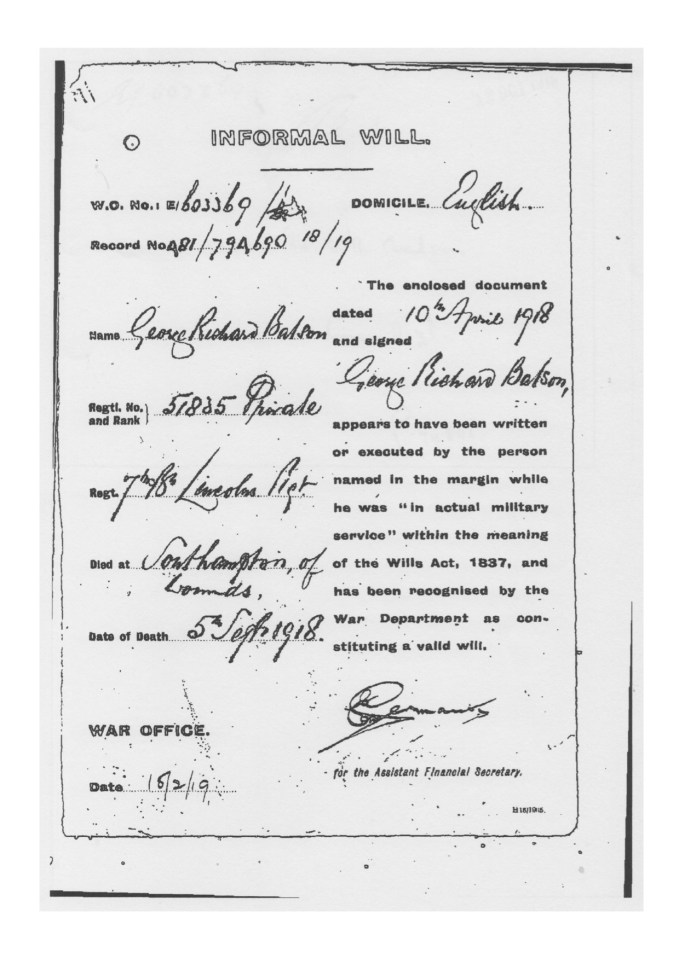 INFORMAL WILL.
W.O. No.: E/603369/1
DOMICILE. English.
Record No. 481/794690 18/19
Name George Richard Batson
Regtl. No. and Rank } 51835 Private
Regt. 7th Bn Lincoln Rgt.
Died at Southampton, of
wounds,
Date of Death 5th Sept 1918.
The enclosed document
dated 10th April 1918
and signed
George Richard Batson,
appears to have been written
or executed by the person
named in the margin while
he was "in actual military
service" within the meaning
of the Wills Act, 1837, and
has been recognised by the
War Department as con-
stituting a valid will.
WAR OFFICE.
Date 15/2/19
for the Assistant Financial Secretary.